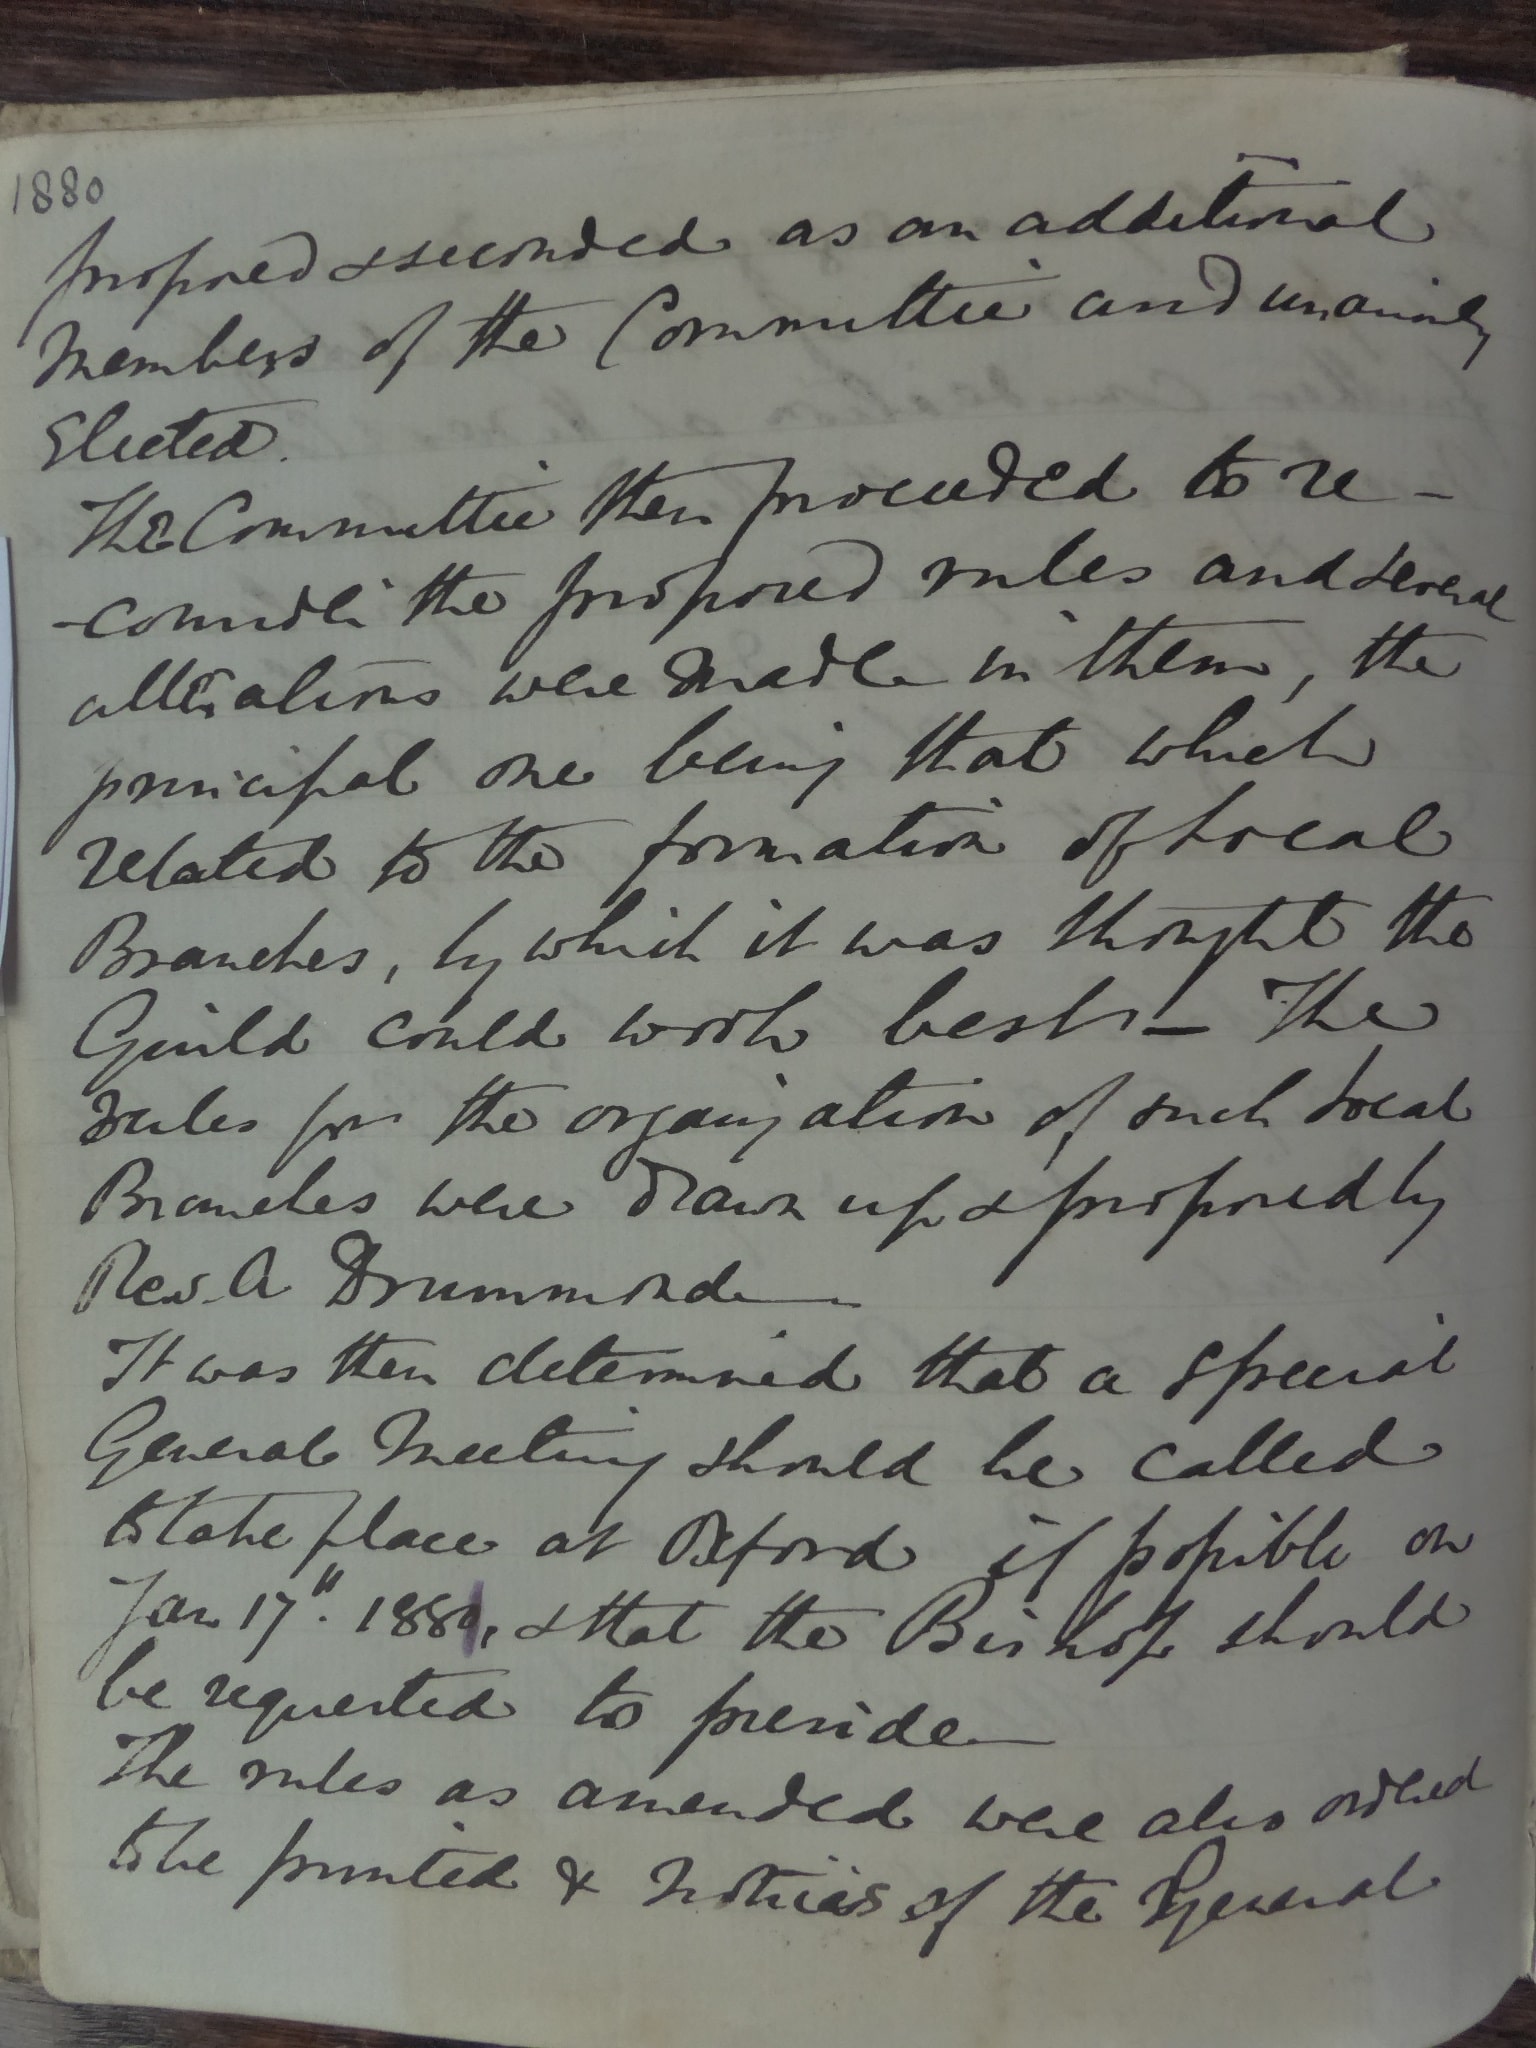 1880
proposed & seconded as an additional
Members of the Committee and unanimly
Elected.
The Committee then proceeded to re-
-consider the proposed rules and several
alterations were made in them, the
principal one being that which
related to the formation of Local
Branches, by which it was thought the
Guild could work best — The
rules for the organization of such Local
Branches were drawn up & proposed by
Rev. A Drummond —
It was then determined that a special
General Meeting should be called
to take place at Oxford if possible on
Jan 17". 1881, & that the Bishop should
be requested to preside —
The rules as amended were also ordered
to be printed & Notices of the General